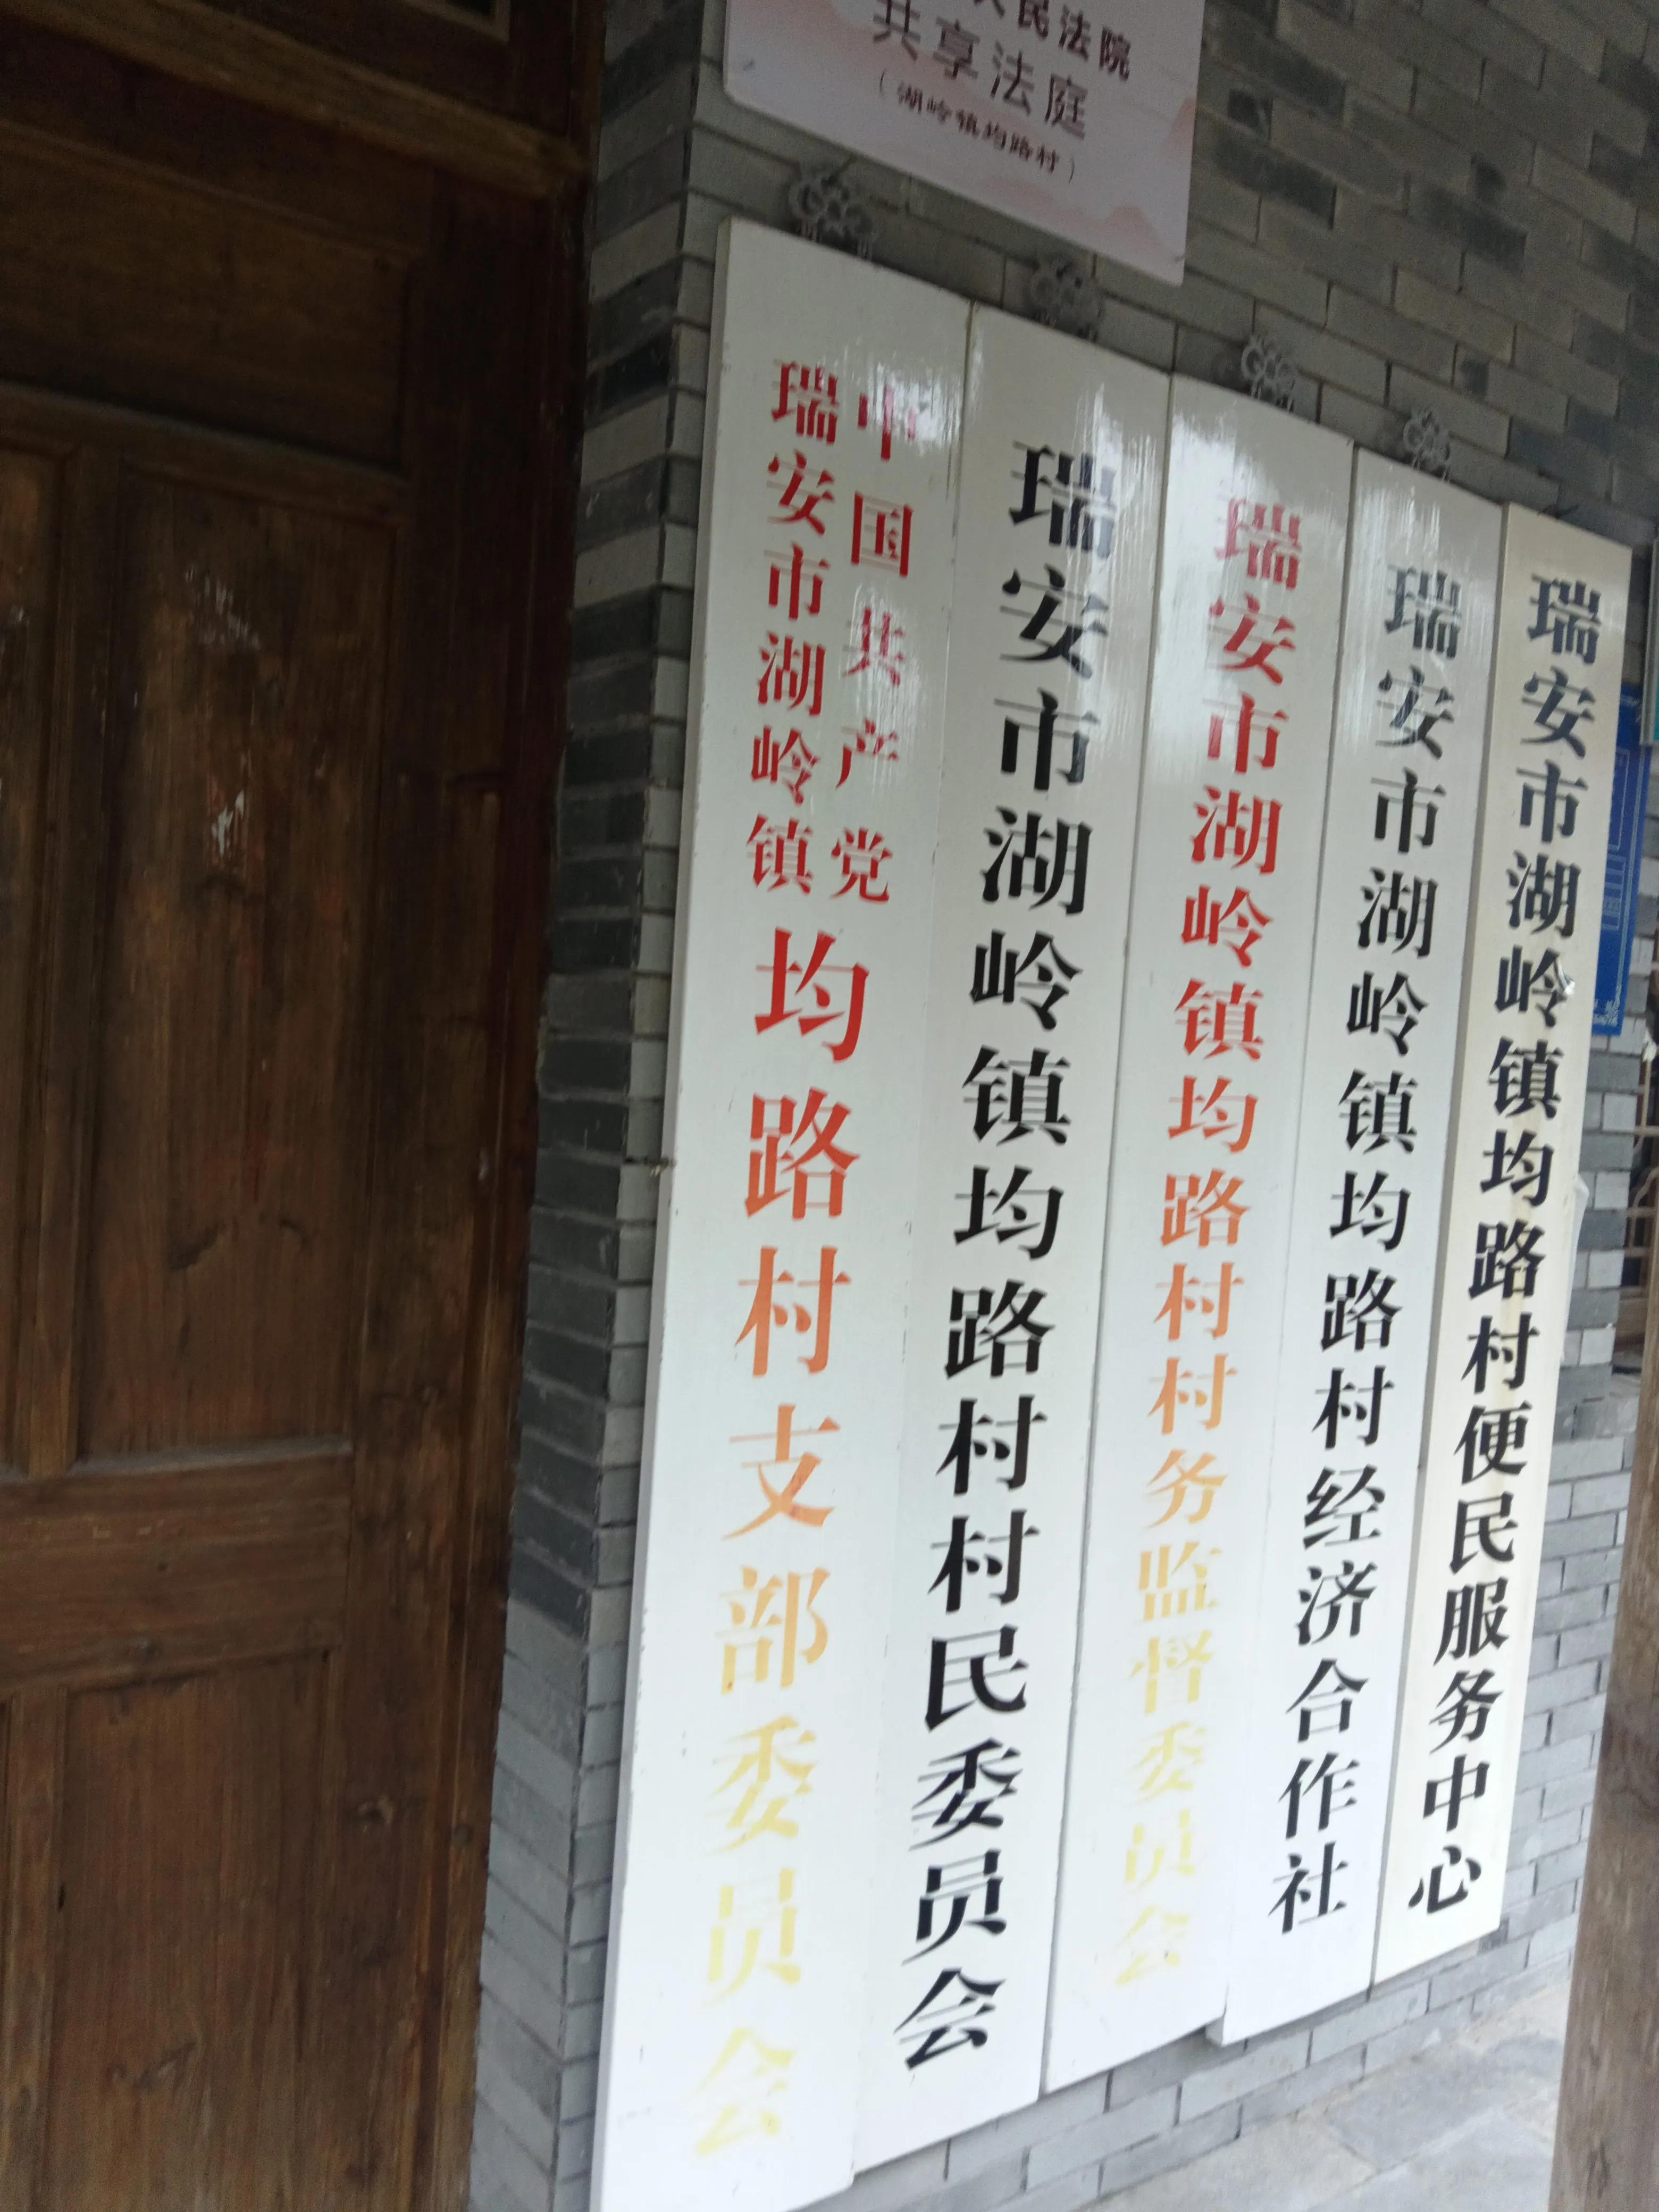 人民法院
共享法庭
(湖岭镇均路村)
中国共产党
瑞安市湖岭镇
均路村支部委员会
瑞安市湖岭镇均路村村民委员会
瑞安市湖岭镇均路村村务监督委员会
瑞安市湖岭镇均路村经济合作社
瑞安市湖岭镇均路村便民服务中心